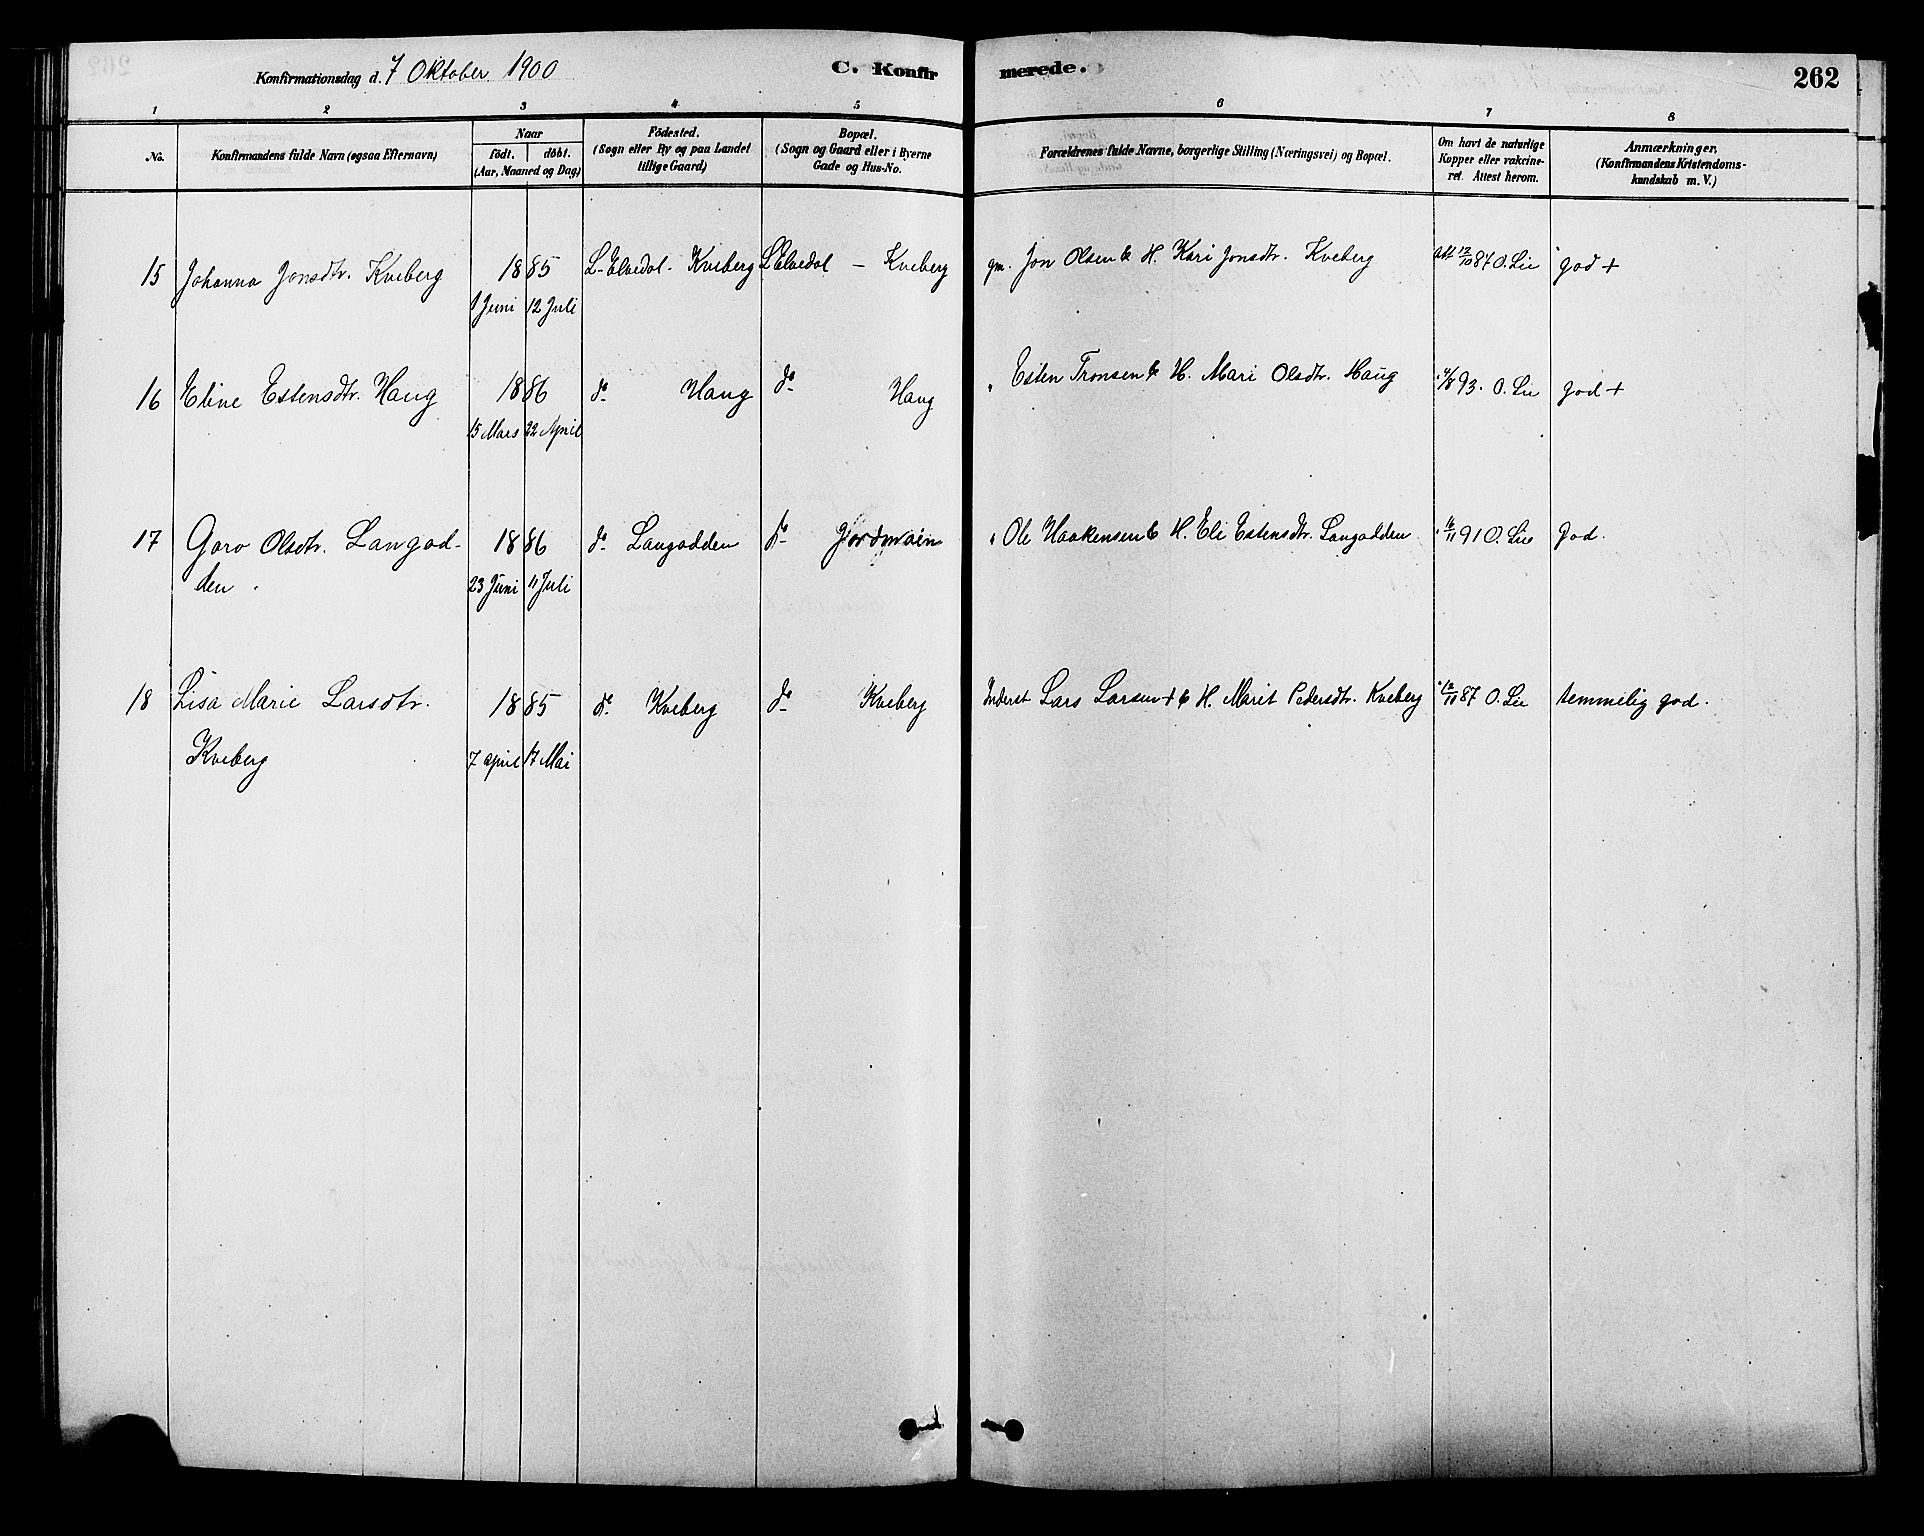 Konfirmationsdag d. 7 Oktober 1900
C. Konfirmerede.
262
1 2 3 4 5 6 7 8
No.
Konfirmandens fulde Navn (ogsaa Efternavn)
Naar
födt. döbt.
(Aar, Maaned og Dag)
Födested.
(Sogn eller By og paa Landet
tillige Gaard)
Bopæl.
(Sogn og Gaard eller i Byerne
Gade og Hus-No.
Forældrenes fulde Navne, borgerlige Stilling (Næringsvei) og Bopæl.
Om havt de naturlige
Kopper eller vakcine-
ret. Attest herom.
Anmærkninger.
(Konfirmandens Kristendoms-
kundskab m. V.)
15 Johanna Jonsdtr. Kveberg 1885 L-Elvedal. Kveberg L Elvedal – Kveberg gm. Jon Olsen & H. Kari Jonsdtr. Kveberg Att 12/10 87 O. Lie god +
1 Juni 12 Juli
16 Eline Estensdtr. Haug 1886 do Haug do Haug " Esten Tronsen & H. Mari Olsdtr. Haug " 4/8 93. O. Lie god +
15 Mars 22 April
17 Goro Olsdtr. Langod- 1886 do Langodden do " Ole Haakensen & H. Eli Estensdtr. Langodden " 16/11 91 O. Lie god.
den. 23 Juni 11 Juli
18 Lisa Marie Larsdtr. 1885 do Kveberg do Kveberg Inderst Lars Larsen + & H. Marit Pedersdtr. Kveberg " 12/10 87 O. Lie temmelig god.
Kveberg 7 april 17 Mai